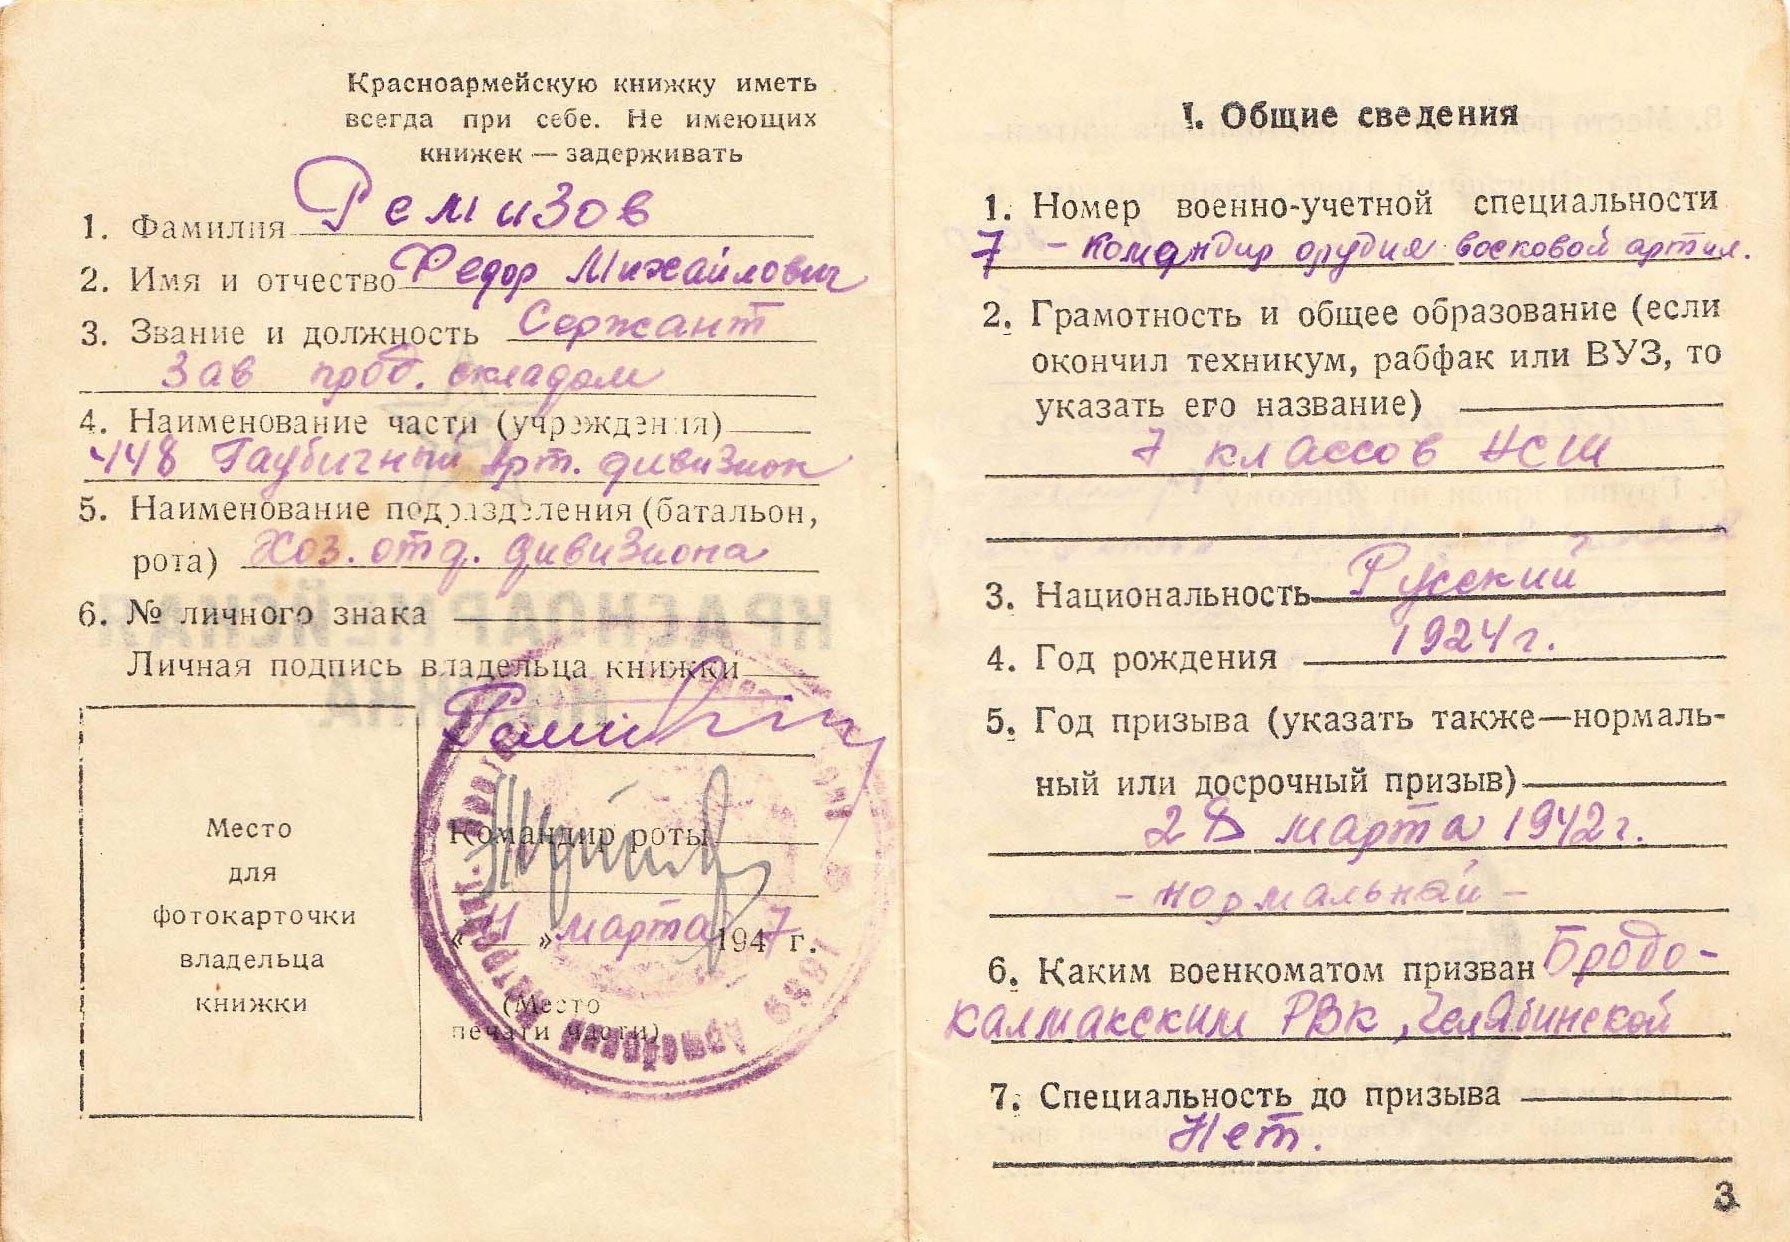 Красноармейскую книжку иметь
всегда при себе. Не имеющих
книжек — задерживать
1. Фамилия Ремизов
2. Имя и отчество Федор Михайлович
3. Звание и должность Сержант
Зав прод. складом
4. Наименование части (учреждения)
448 Гаубичный Арт. дивизион
5. Наименование подразделения (батальон,
рота) Хоз. отд. дивизиона
6. № личного знака
Личная подпись владельца книжки
Командир роты
« 4 » марта 1947 г.
(Место
печати части)
Место
для
фотокарточки
владельца
книжки
I. Общие сведения
1. Номер военно-учетной специальности
7 - командир орудия восковой артил.
2. Грамотность и общее образование (если
окончил техникум, рабфак или ВУЗ, то
указать его название)
7 классов НСШ
3. Национальность Русский
4. Год рождения 1924 г.
5. Год призыва (указать также—нормаль-
ный или досрочный призыв)
28 марта 1942 г.
- нормальный -
6. Каким военкоматом призван Бродо-
калмакским РВК, Челябинской
7. Специальность до призыва
Нет.
3